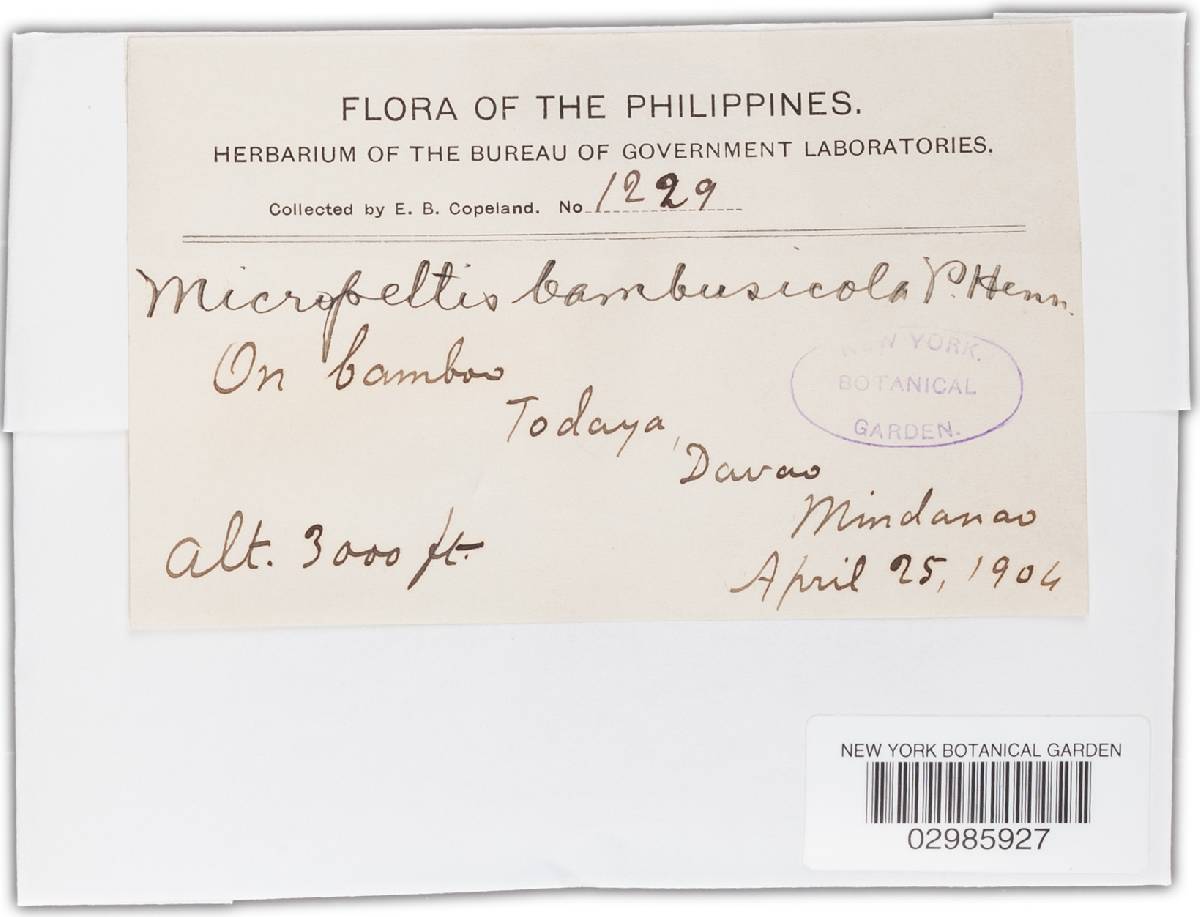 FLORA OF THE PHILIPPINES.
HERBARIUM OF THE BUREAU OF GOVERNMENT LABORATORIES.
Collected by E. B. Copeland. No. 1229
Micropeltis bambusicola P. Henn.
On bamboo
NEW YORK.
BOTANICAL
GARDEN.
Todaya,
Davao
Mindanao
Alt. 3000 ft.
April 25, 1904
NEW YORK BOTANICAL GARDEN
02985927